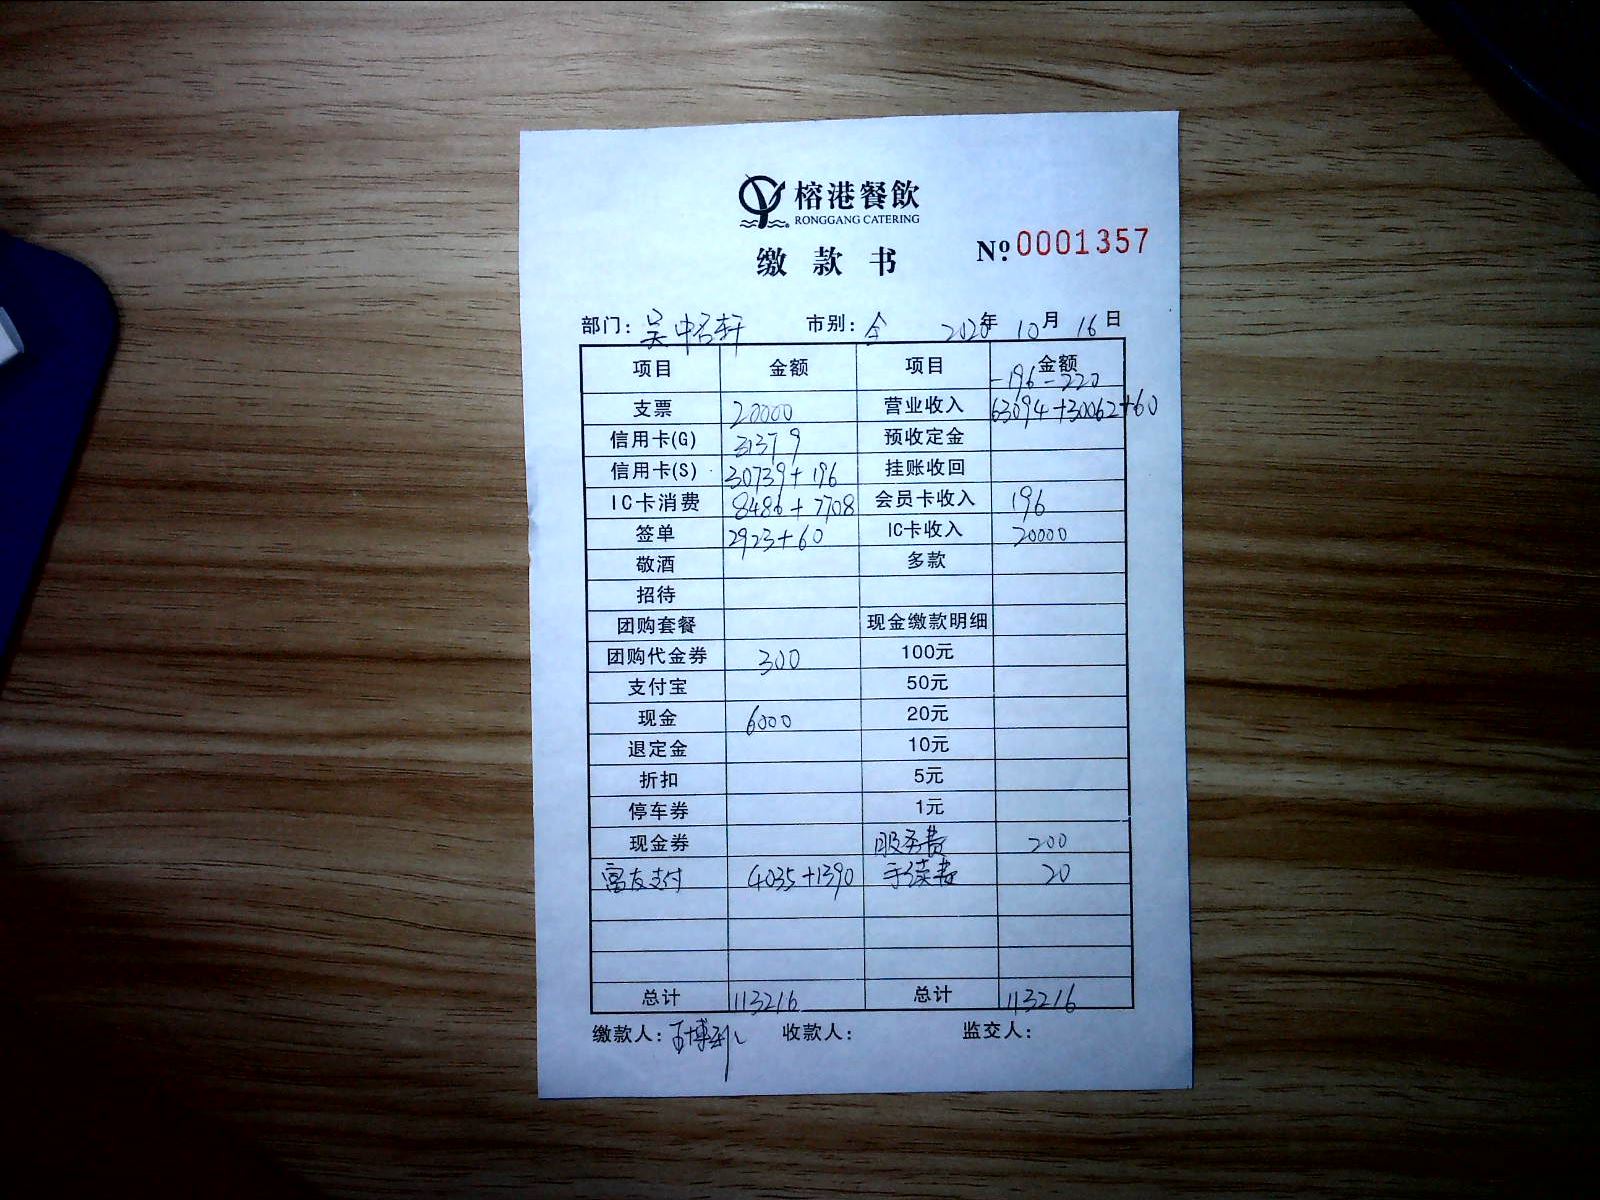 榕港餐飲
RONGGANG CATERING
缴款书 № 0001357
部门：吴中名轩 市别：全 2020年10月16日
项目 金额 项目 金额
-196-220
支票 20000 营业收入 63094+30062+60
信用卡(G) 31379 预收定金
信用卡(S) 30739+196 挂账收回
IC卡消费 8486+7708 会员卡收入 196
签单 2923+60 IC卡收入 20000
敬酒 多款
招待
团购套餐 现金缴款明细
团购代金券 300 100元
支付宝 50元
现金 6000 20元
退定金 10元
折扣 5元
停车券 1元
现金券 服务费 200
富友支付 4035+1390 手续费 20
总计 113216 总计 113216
缴款人： 收款人： 监交人：